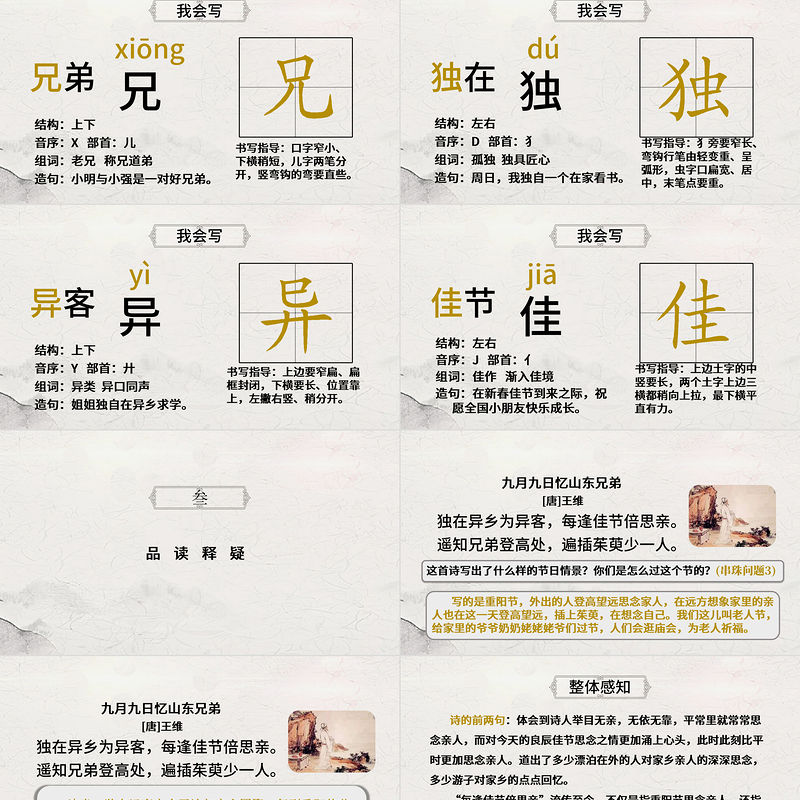 我会写
兄弟
xiōng
兄
兄
结构：上下
音序：X 部首：儿
组词：老兄 称兄道弟
造句：小明与小强是一对好兄弟。
书写指导：口字窄小、
下横稍短，儿字两笔分
开，竖弯钩的弯要直些。
我会写
独在
dú
独
独
结构：左右
音序：D 部首：犭
组词：孤独 独具匠心
造句：周日，我独自一个在家看书。
书写指导：犭旁要窄长、
弯钩行笔由轻变重、呈
弧形，虫字口扁宽、居
中，末笔点要重。
我会写
异客
yì
异
异
结构：上下
音序：Y 部首：廾
组词：异类 异口同声
造句：姐姐独自在异乡求学。
书写指导：上边要窄扁、扁
框封闭，下横要长、位置靠
上，左撇右竖、稍分开。
我会写
佳节
jiā
佳
佳
结构：左右
音序：J 部首：亻
组词：佳作 渐入佳境
造句：在新春佳节到来之际，祝
愿全国小朋友快乐成长。
书写指导：上边土字的中
竖要长，两个土字上边三
横都稍向上拉，最下横平
直有力。
叁
品读释疑
九月九日忆山东兄弟
[唐]王维
独在异乡为异客，每逢佳节倍思亲。
遥知兄弟登高处，遍插茱萸少一人。
这首诗写出了什么样的节日情景？你们是怎么过这个节的？(串珠问题3)
写的是重阳节，外出的人登高望远思念家人，在远方想象家里的亲
人也在这一天登高望远，插上茱萸，在想念自己。我们这儿叫老人节，
给家里的爷爷奶奶姥姥姥爷们过节，人们会逛庙会，为老人祈福。
九月九日忆山东兄弟
[唐]王维
独在异乡为异客，每逢佳节倍思亲。
遥知兄弟登高处，遍插茱萸少一人。
整体感知
诗的前两句：体会到诗人举目无亲，无依无靠，平常里就常常思
念亲人，而对今天的良辰佳节思念之情更加涌上心头，此时此刻比平
时更加思念亲人。道出了多少漂泊在外的人对家乡亲人的深深思念，
多少游子对家乡的点点回忆。
“每逢佳节倍思亲”流传至今，不仅是指重阳节思念亲人，还指